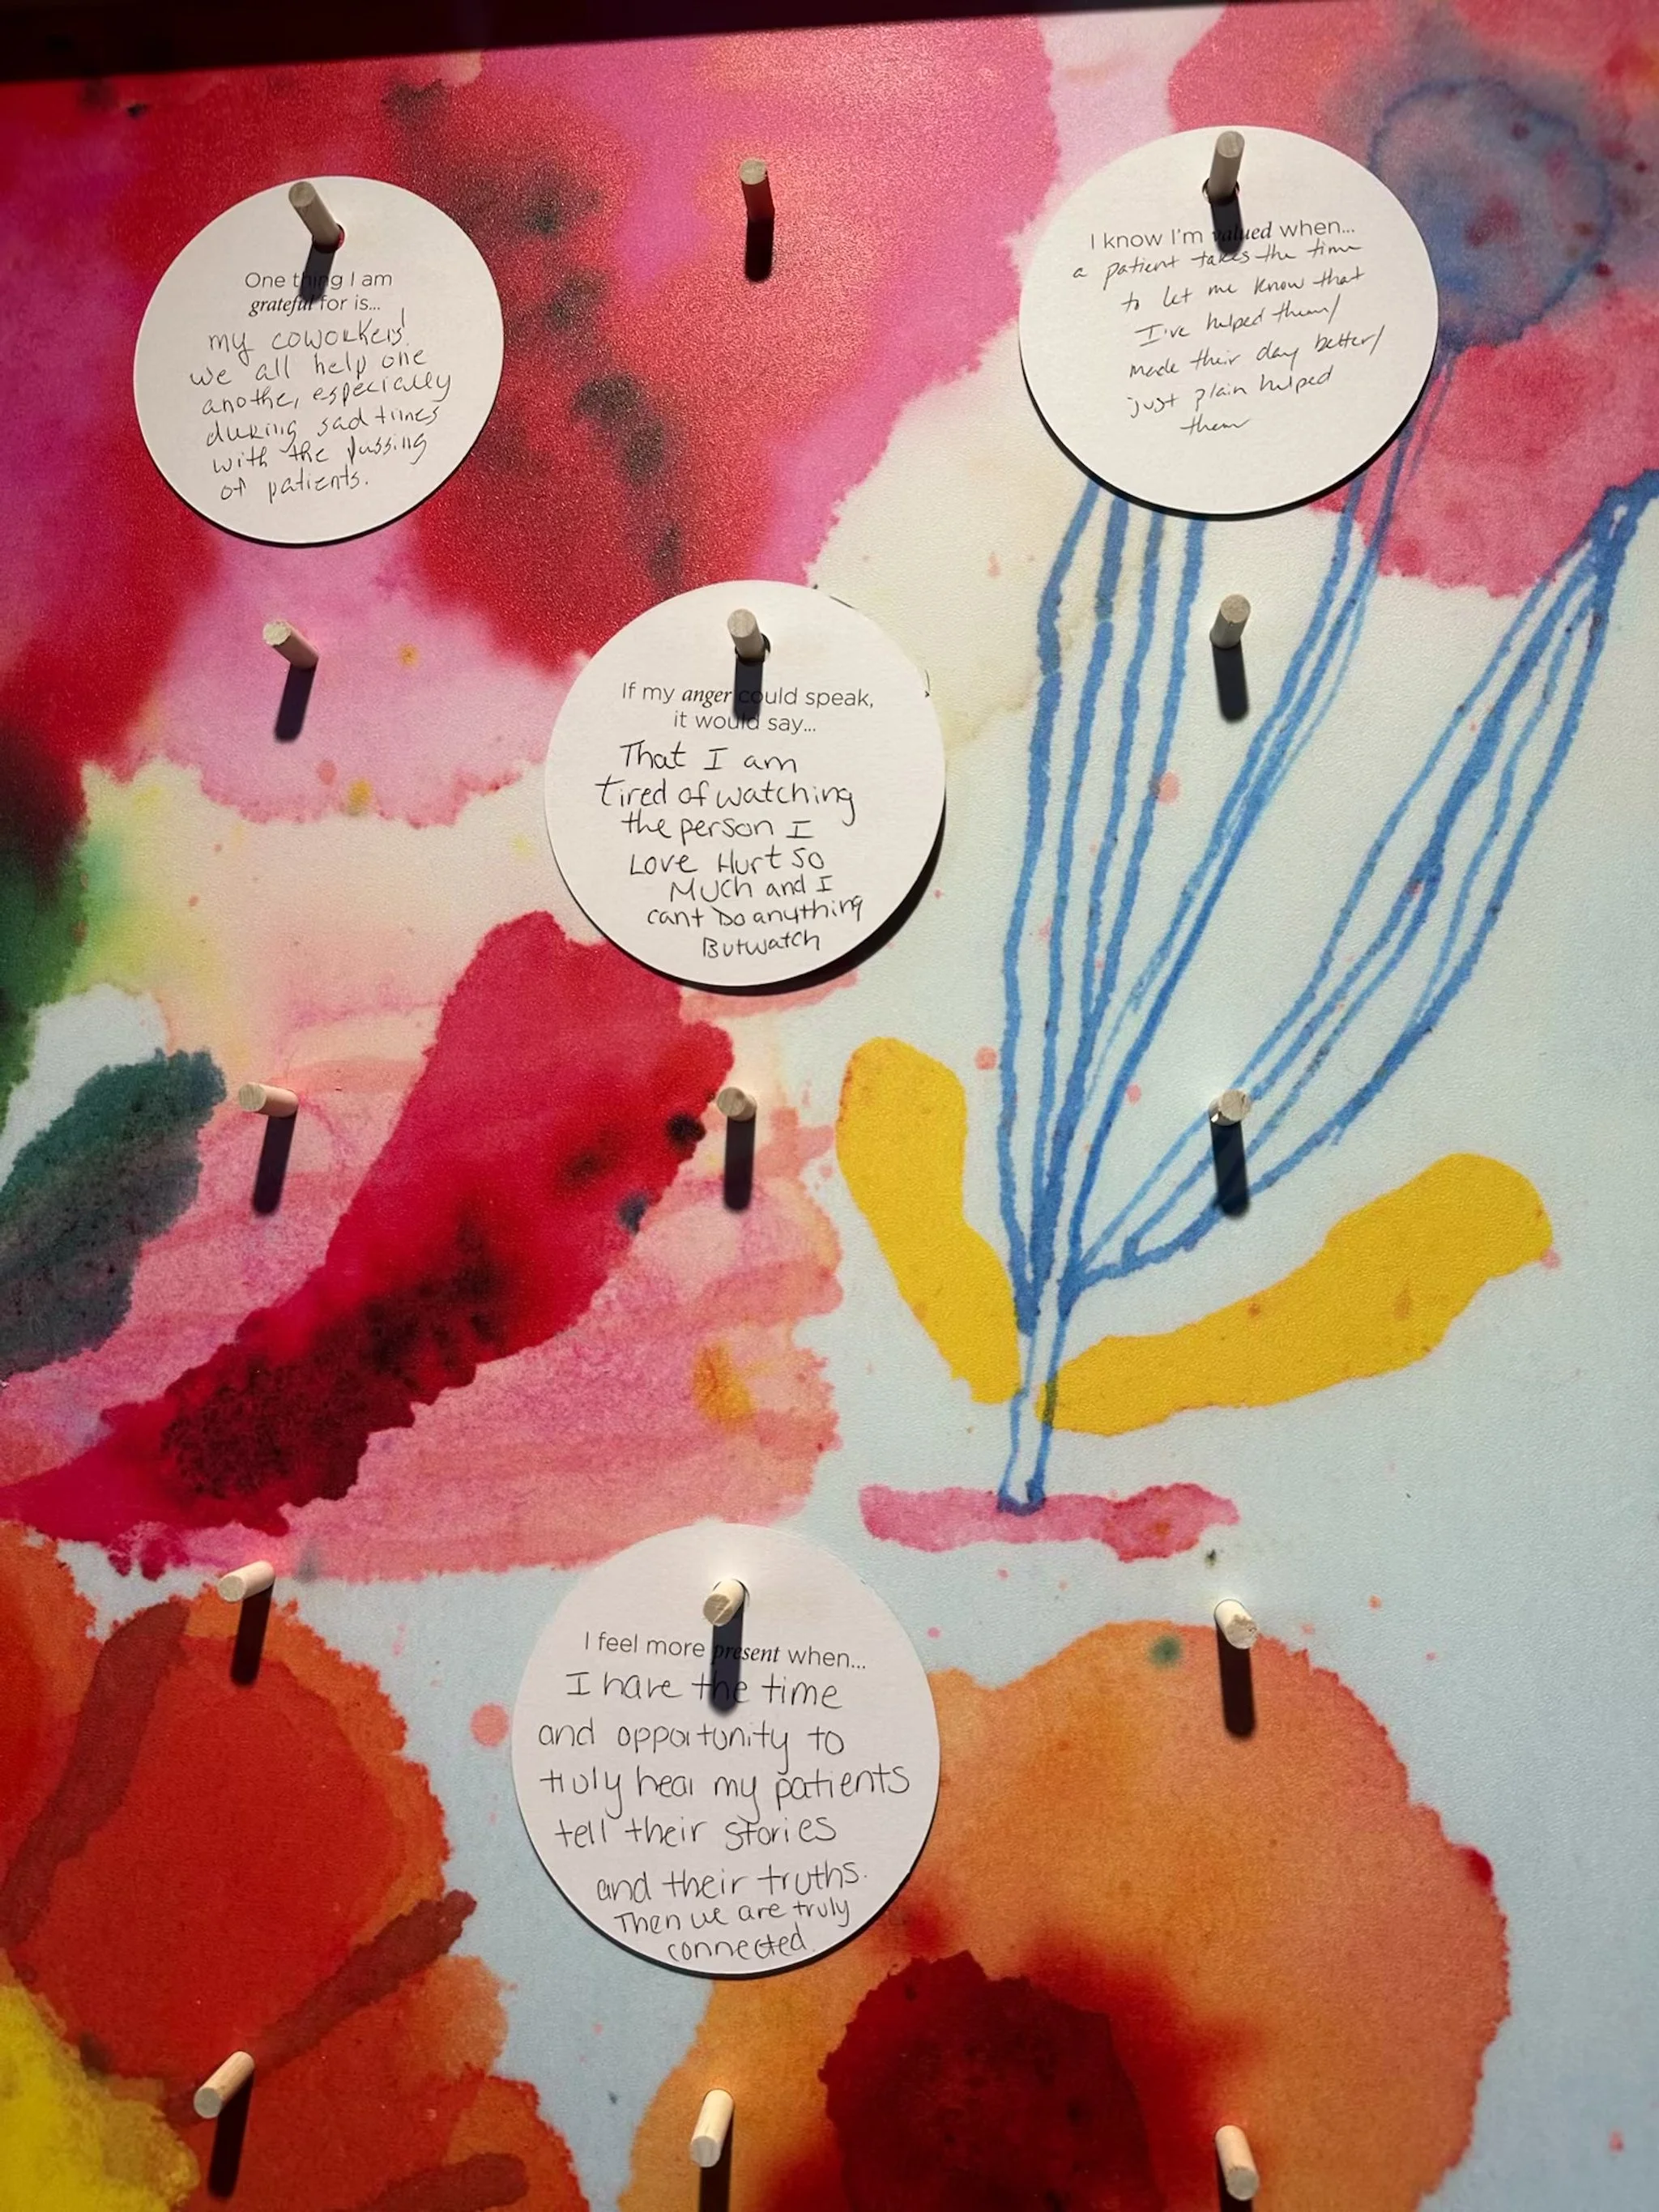 One thing I am
grateful for is...
my coworkers!
we all help one
another, especially
during sad times
with the passing
of patients.
I know I'm valued when...
a patient takes the time
to let me know that
I've helped them/
made their day better/
just plain helped
them
If my anger could speak,
it would say...
That I am
tired of watching
the person I
Love Hurt so
Much and I
cant Do anything
But watch
I feel more present when...
I have the time
and opportunity to
truly hear my patients
tell their stories
and their truths.
Then we are truly
connected.